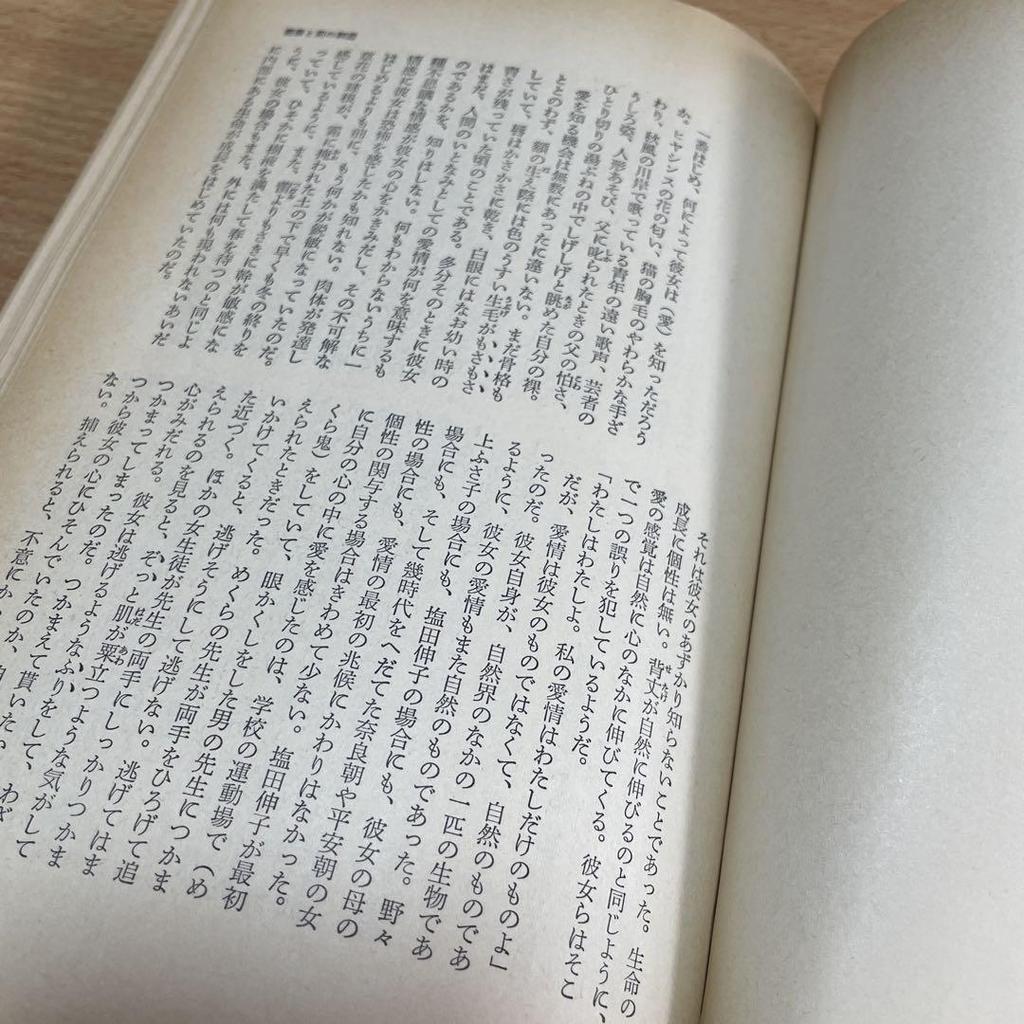 一番はじめ、何によって彼女は（愛）を知っただろう
か。ヒヤシンスの花の匂い、猫の胸毛のやわらかな手ざ
わり、秋風の川岸で歌っている青年の遠い歌声、芸者の
うしろ姿、人形あそび、父に叱られたときの父の怕さ、
ひとり切りの湯ぶねの中でしげしげと眺めた自分の裸。
愛を知る機会は無数にあったに違いない。まだ骨格も
ととのわず、額の生え際には色のうすい生毛がもさもさ
していて、唇はかさかさに乾き、白眼にはなお幼い時の
青さが残っていた頃のことである。多分そのときに彼女
はまだ、人間のいとなみとしての愛情が何を意味するも
のであるかを、知りはしない。何もわからないうちに一
種不思議な情感が彼女の心をかきみだし、その不可解な
情感に彼女は恐怖を感じたかも知れない。肉体が発達し
はじめるよりも前に、もう何かが鋭敏になっていたのだ。
草花の球根が、霜に掩われた土の下で早くも冬の終りを
感じているように、また、蕾よりもさきに幹が敏感にな
っていて、ひそかに樹液を満たして春を待つのと同じよ
うに、彼女の場合もまた、外には何も現われないあいだ
に内部にある生命が成長をはじめていたのだ。
それは彼女のあずかり知らないことであった。生命の
成長に個性は無い。背丈が自然に伸びるのと同じように、
愛の感覚は自然に心のなかに伸びてくる。彼女らはそこ
で一つの誤りを犯しているようだ。
「わたしはわたしよ。私の愛情はわたしだけのものよ」
だが、愛情は彼女のものではなくて、自然のものであ
ったのだ。彼女自身が、自然界のなかの一匹の生物であ
るように、彼女の愛情もまた自然のものであった。野々
上ふさ子の場合にも、塩田伸子の場合にも、彼女の母の
場合にも、そして幾時代をへだてた奈良朝や平安朝の女
性の場合にも、愛情の最初の兆候にかわりはなかった。
個性の関与する場合はきわめて少ない。塩田伸子が最初
に自分の心の中に愛を感じたのは、学校の運動場で（め
くら鬼）をしていて、眼かくしをした男の先生につかま
えられたときだった。めくらの先生が両手をひろげて追
いかけてくると、逃げそうにして逃げない。逃げてはま
た近づく。ほかの女生徒が先生の両手にしっかりつかま
えられるのを見ると、ぞっと肌が粟立つような気がして
心がみだれる。彼女は逃げるようなふりをして、わざ
つかまってしまったのだ。つかまえて貰いたい、
つから彼女の心にひそんでいたのか、
ない。捕えられると、不意に